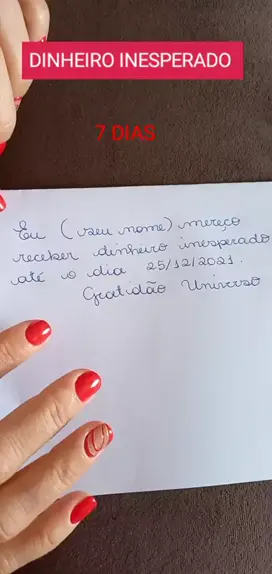 DINHEIRO INESPERADO
7 DIAS
Eu (seu nome) mereço
receber dinheiro inesperado
até o dia 25/12/2021.
Gratidão Universo